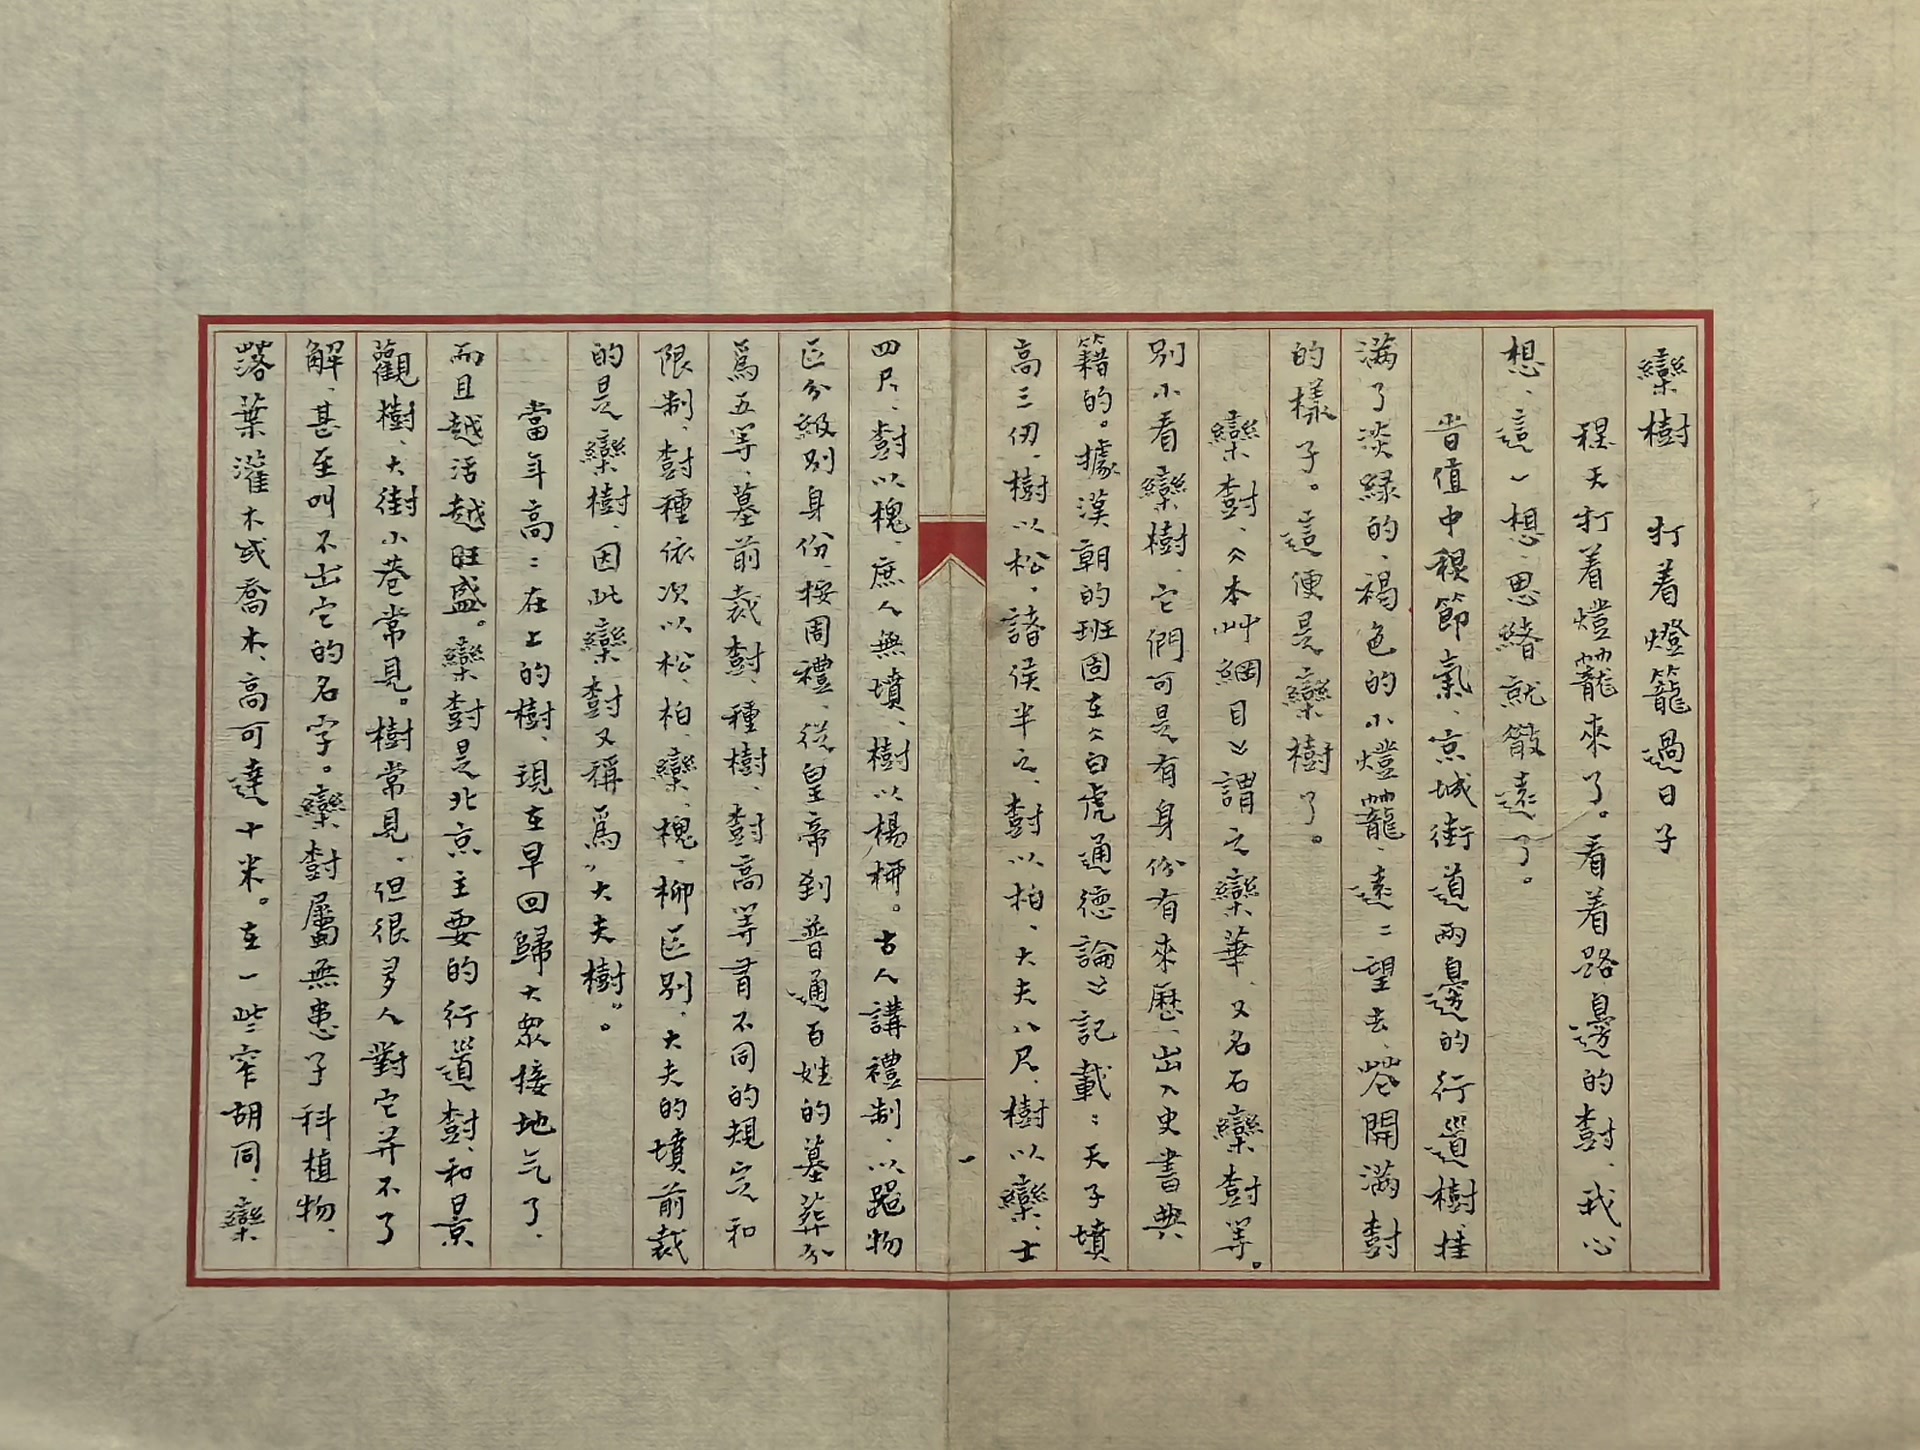 欒樹 打着燈籠過日子
程天打着燈籠來了。看着路邊的樹、我心
想、這一想、思緒就散遠了。
昔值中稷節氣、京城街道兩邊的行道樹挂
滿了淡綠的、褐色的小燈籠、遠二望去、花開滿樹
的樣子。這便是欒樹了。
欒樹、《本艸綱目》謂之欒華、又名石欒樹等。
別小看欒樹、它們可是有身份有來歷、出入史書典
籍的。據漢朝的班固在《白虎通德論》記載：天子墳
高三仞、樹以松、諸侯半之、樹以柏、大夫八尺、樹以欒、士
四尺、樹以槐、庶人無墳、樹以楊柳。古人講禮制、以器物
區分級別身份、按周禮、從皇帝到普通百姓的墓葬分
爲五等、墓前栽樹、種樹、樹高等有不同的規定和
限制、樹種依次以松、柏、欒、槐、柳區別、大夫的墳前栽
的是欒樹、因此欒樹又稱爲“大夫樹”。
當年高：在上的樹、現在早回歸大眾接地气了、
而且越活越旺盛。欒樹是北京主要的行道樹、和景
觀樹、大街小巷常見。樹常見、但很多人對它并不了
解、甚至叫不出它的名字。欒樹屬無患子科植物、
落葉灌木或喬木、高可達十米。在一些窄胡同、欒
一